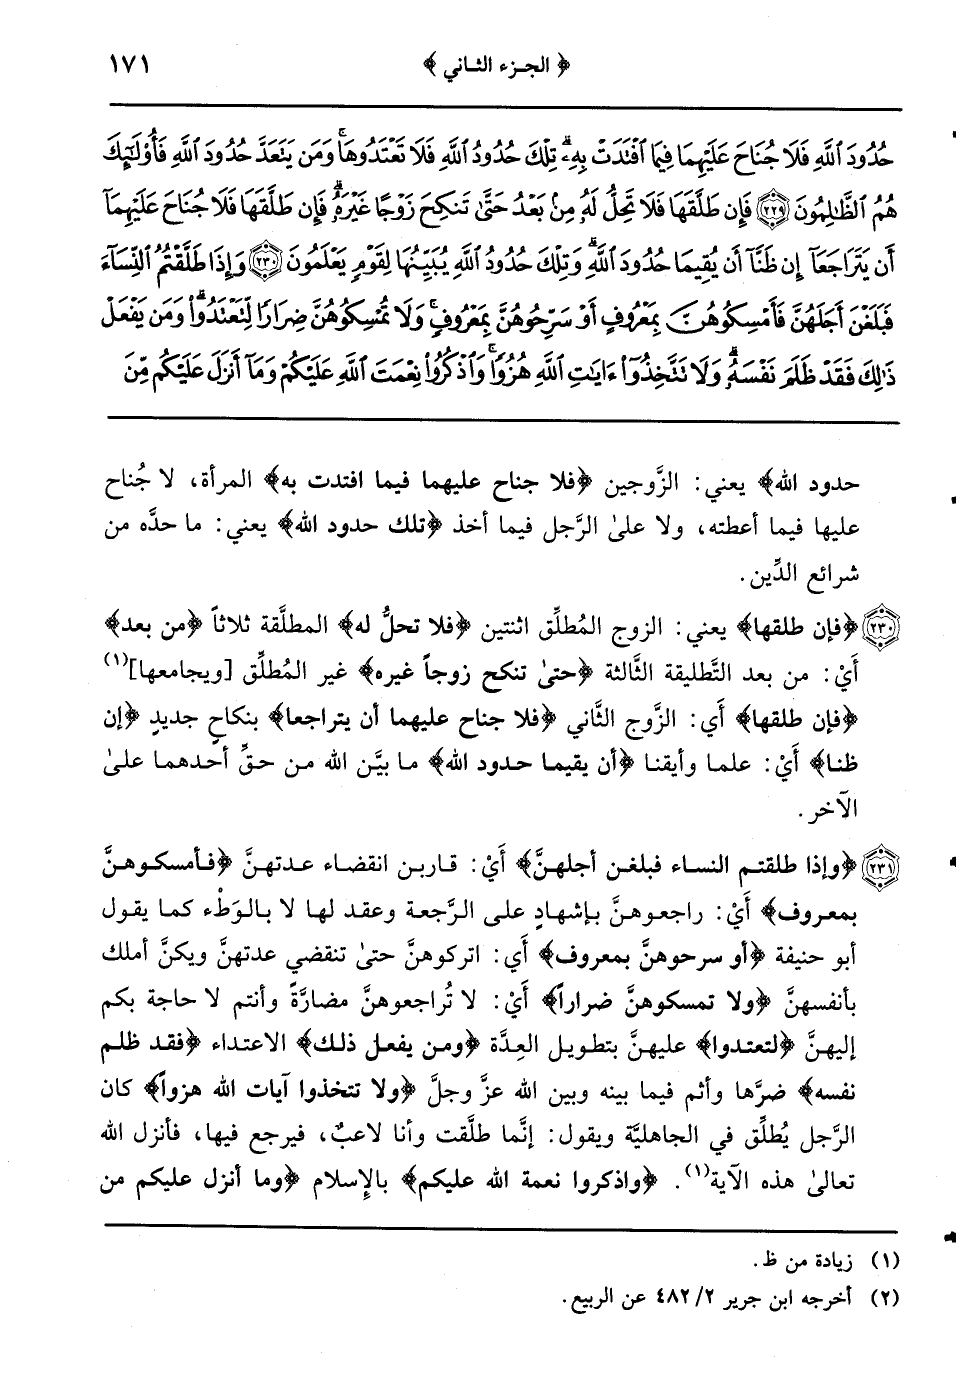 ﴿ الجزء الثاني ﴾ ١٧١
حُدُودَ ٱللَّهِ فَلَا جُنَاحَ عَلَيْهِمَا فِيمَا ٱفْتَدَتْ بِهِۦۗ تِلْكَ حُدُودُ ٱللَّهِ فَلَا تَعْتَدُوهَاۚ وَمَن يَتَعَدَّ حُدُودَ ٱللَّهِ فَأُوْلَٰٓئِكَ
هُمُ ٱلظَّٰلِمُونَ ٢٢٩ فَإِن طَلَّقَهَا فَلَا تَحِلُّ لَهُۥ مِنۢ بَعْدُ حَتَّىٰ تَنكِحَ زَوْجًا غَيْرَهُۥۗ فَإِن طَلَّقَهَا فَلَا جُنَاحَ عَلَيْهِمَآ
أَن يَتَرَاجَعَآ إِن ظَنَّآ أَن يُقِيمَا حُدُودَ ٱللَّهِۗ وَتِلْكَ حُدُودُ ٱللَّهِ يُبَيِّنُهَا لِقَوْمٍ يَعْلَمُونَ ٢٣٠ وَإِذَا طَلَّقْتُمُ ٱلنِّسَآءَ
فَبَلَغْنَ أَجَلَهُنَّ فَأَمْسِكُوهُنَّ بِمَعْرُوفٍ أَوْ سَرِّحُوهُنَّ بِمَعْرُوفٍۚ وَلَا تُمْسِكُوهُنَّ ضِرَارًا لِّتَعْتَدُوا۟ۚ وَمَن يَفْعَلْ
ذَٰلِكَ فَقَدْ ظَلَمَ نَفْسَهُۥۚ وَلَا تَتَّخِذُوٓا۟ ءَايَٰتِ ٱللَّهِ هُزُوًاۚ وَٱذْكُرُوا۟ نِعْمَتَ ٱللَّهِ عَلَيْكُمْ وَمَآ أَنزَلَ عَلَيْكُم مِّنَ
حدود الله﴾ يعني: الزَّوجين ﴿فلا جناح عليهما فيما افتدت به﴾ المرأة، لا جُناح
عليها فيما أعطته، ولا علىٰ الرَّجل فيما أخذ ﴿تلك حدود الله﴾ يعني: ما حدَّه من
شرائع الدِّين.
٢٣٠ ﴿فإن طلقها﴾ يعني: الزوج المُطلِّق اثنتين ﴿فلا تحلُّ له﴾ المطلَّقة ثلاثاً ﴿من بعد﴾
أيْ: من بعد التَّطليقة الثَّالثة ﴿حتىٰ تنكح زوجاً غيره﴾ غير المُطلِّق [ويجامعها](١)
﴿فإن طلقها﴾ أَي: الزَّوج الثَّاني ﴿فلا جناح عليهما أن يتراجعا﴾ بنكاحٍ جديدٍ ﴿إن
ظنا﴾ أَيْ: علما وأيقنا ﴿أن يقيما حدود الله﴾ ما بيَّن الله من حقِّ أحدهما علىٰ
الآخر.
٢٣١ ﴿وإذا طلقتم النساء فبلغن أجلهنَّ﴾ أَيْ: قاربن انقضاء عدتهنَّ ﴿فأمسكوهنَّ
بمعروف﴾ أَيْ: راجعوهنَّ بإشهادٍ على الرَّجعة وعقد لها لا بالوَطْء كما يقول
أبو حنيفة ﴿أو سرحوهنَّ بمعروف﴾ أَي: اتركوهنَّ حتىٰ تنقضي عدتهنَّ ويكنَّ أملك
بأنفسهنَّ ﴿ولا تمسكوهنَّ ضراراً﴾ أَيْ: لا تُراجعوهنَّ مضارَّةً وأنتم لا حاجة بكم
إليهنَّ ﴿لتعتدوا﴾ عليهنَّ بتطويل العِدَّة ﴿ومن يفعل ذلك﴾ الاعتداء ﴿فقد ظلم
نفسه﴾ ضرَّها وأثم فيما بينه وبين الله عزَّ وجلَّ ﴿ولا تتخذوا آيات الله هزواً﴾ كان
الرَّجل يُطلِّق في الجاهليَّة ويقول: إنَّما طلَّقت وأنا لاعبٌ، فيرجع فيها، فأنزل الله
تعالىٰ هذه الآية(١). ﴿واذكروا نعمة الله عليكم﴾ بالإِسلام ﴿وما أنزل عليكم من
(١) زيادة من ظ.
(٢) أخرجه ابن جرير ٤٨٢/٢ عن الربيع.